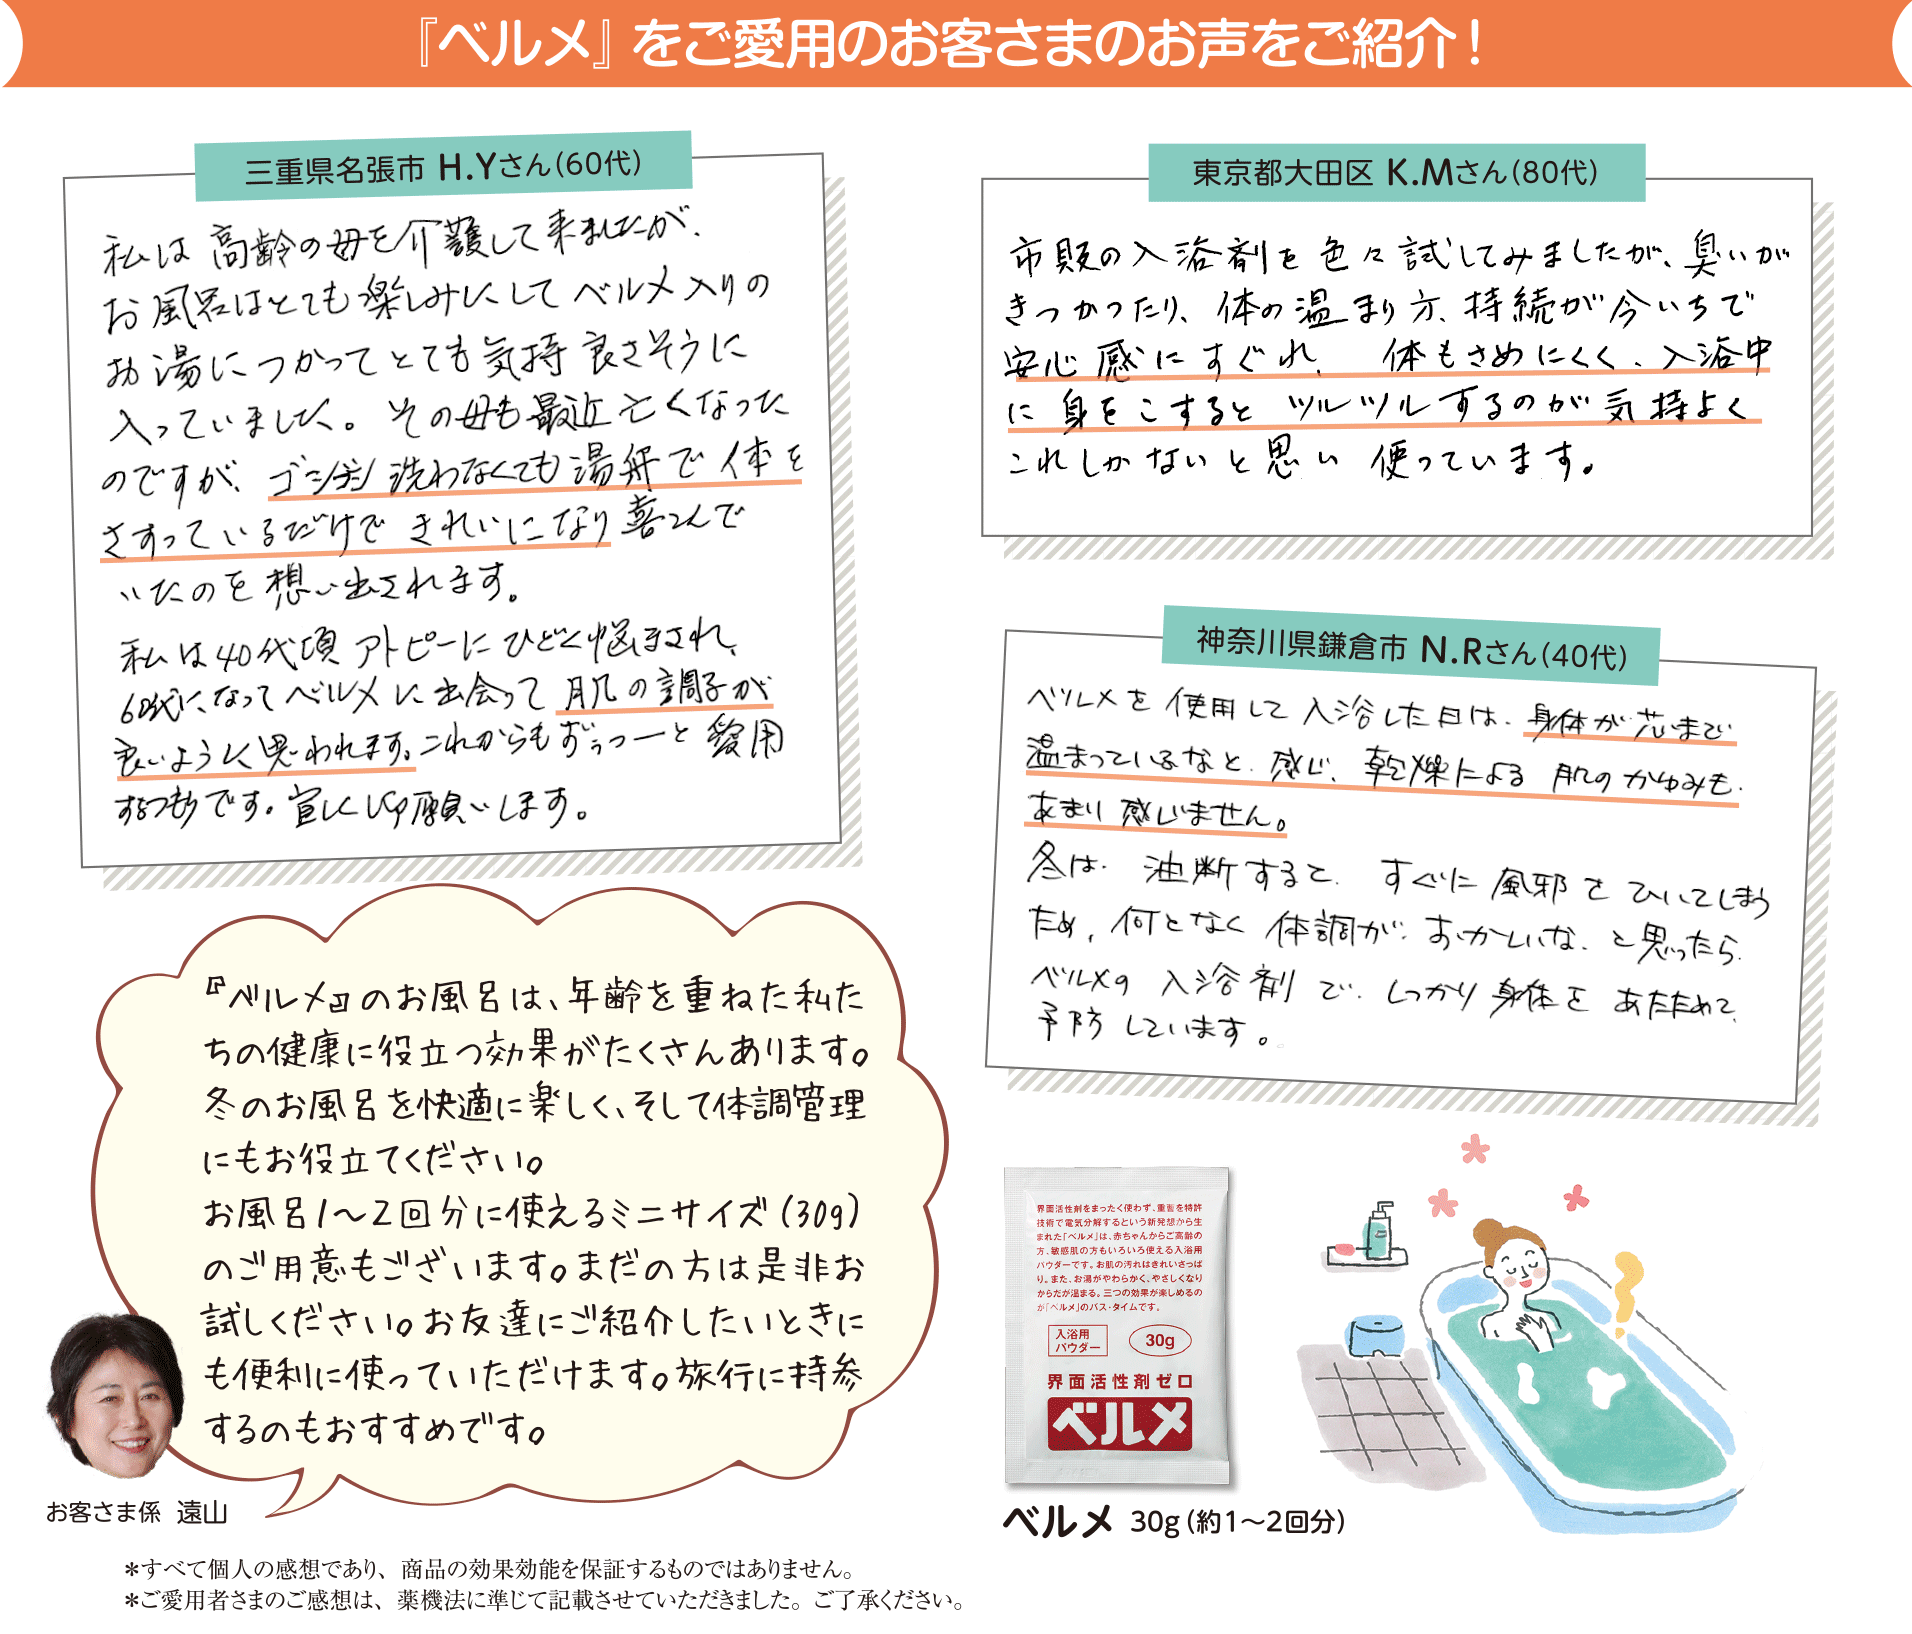 『ベルメ』をご愛用のお客さまのお声をご紹介!
三重県名張市 H.Yさん(60代)
私は高齢の母を介護して来ましたが、
お風呂はとても楽しみにしてベルメ入りの
お湯につかってとても気持良さそうに
入っていました。その母も最近亡くなった
のですが、ゴシゴシ洗わなくても湯舟で体を
さすっているだけできれいになり喜こんで
いたのを想い出されます。
私は40代頃アトピーにひどく悩まされ、
60代になってベルメに出会って肌の調子が
良いように思われます。これからもずぅっーと愛用
するつもりです。宜しく御願いします。
東京都大田区 K.Mさん(80代)
市販の入浴剤を色々試してみましたが、臭いが
きつかったり、体の温まり方、持続が今いちで
安心感にすぐれ、体もさめにくく、入浴中
に身をこするとツルツルするのが気持よく
これしかないと思い使っています。
神奈川県鎌倉市 N.Rさん(40代)
ベルメを使用して入浴した日は、身体が芯まで
温まっているなと感じ、乾燥による肌のかゆみも
あまり感じません。
冬は、油断すると、すぐに風邪をひいてしまう
ため、何となく体調がおかしいな、と思ったら
ベルメの入浴剤で、しっかり身体をあたためて、
予防しています。
『ベルメ』のお風呂は、年齢を重ねた私た
ちの健康に役立つ効果がたくさんあります。
冬のお風呂を快適に楽しく、そして体調管理
にもお役立てください。
お風呂1〜2回分に使えるミニサイズ(30g)
のご用意もございます。まだの方は是非お
試しください。お友達にご紹介したいときに
も便利に使っていただけます。旅行に持参
するのもおすすめです。
お客さま係 遠山
界面活性剤をまったく使わず、重曹を特許
技術で電気分解するという新発想から生
まれた「ベルメ」は、赤ちゃんからご高齢の
方、敏感肌の方もいろいろ使える入浴用
パウダーです。お肌の汚れはきれいさっぱ
り。また、お湯がやわらかく、やさしくなり
からだが温まる。三つの効果が楽しめるの
が「ベルメ」のバス・タイムです。
入浴用
パウダー
30g
界面活性剤ゼロ
ベルメ
ベルメ 30g(約1〜2回分)
＊すべて個人の感想であり、商品の効果効能を保証するものではありません。
＊ご愛用者さまのご感想は、薬機法に準じて記載させていただきました。ご了承ください。